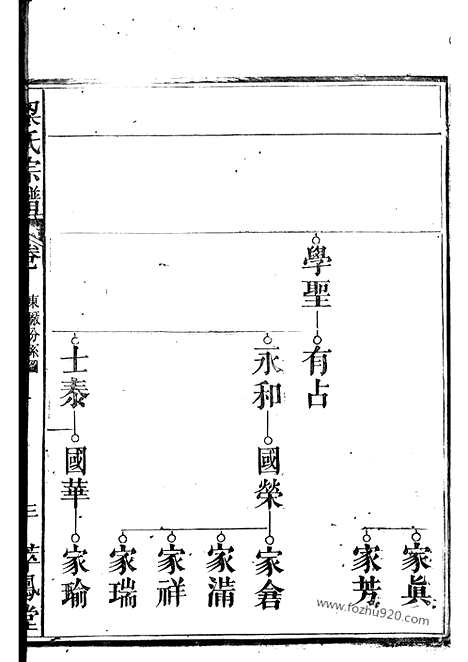 家眞
家芳
學聖
有占
永和
國榮
家倉
家滿
家祥
家瑞
士泰
國華
家瑜
梁氏宗譜
卷
東廠分系圖
三
鳳堂
www.fozhu920.com